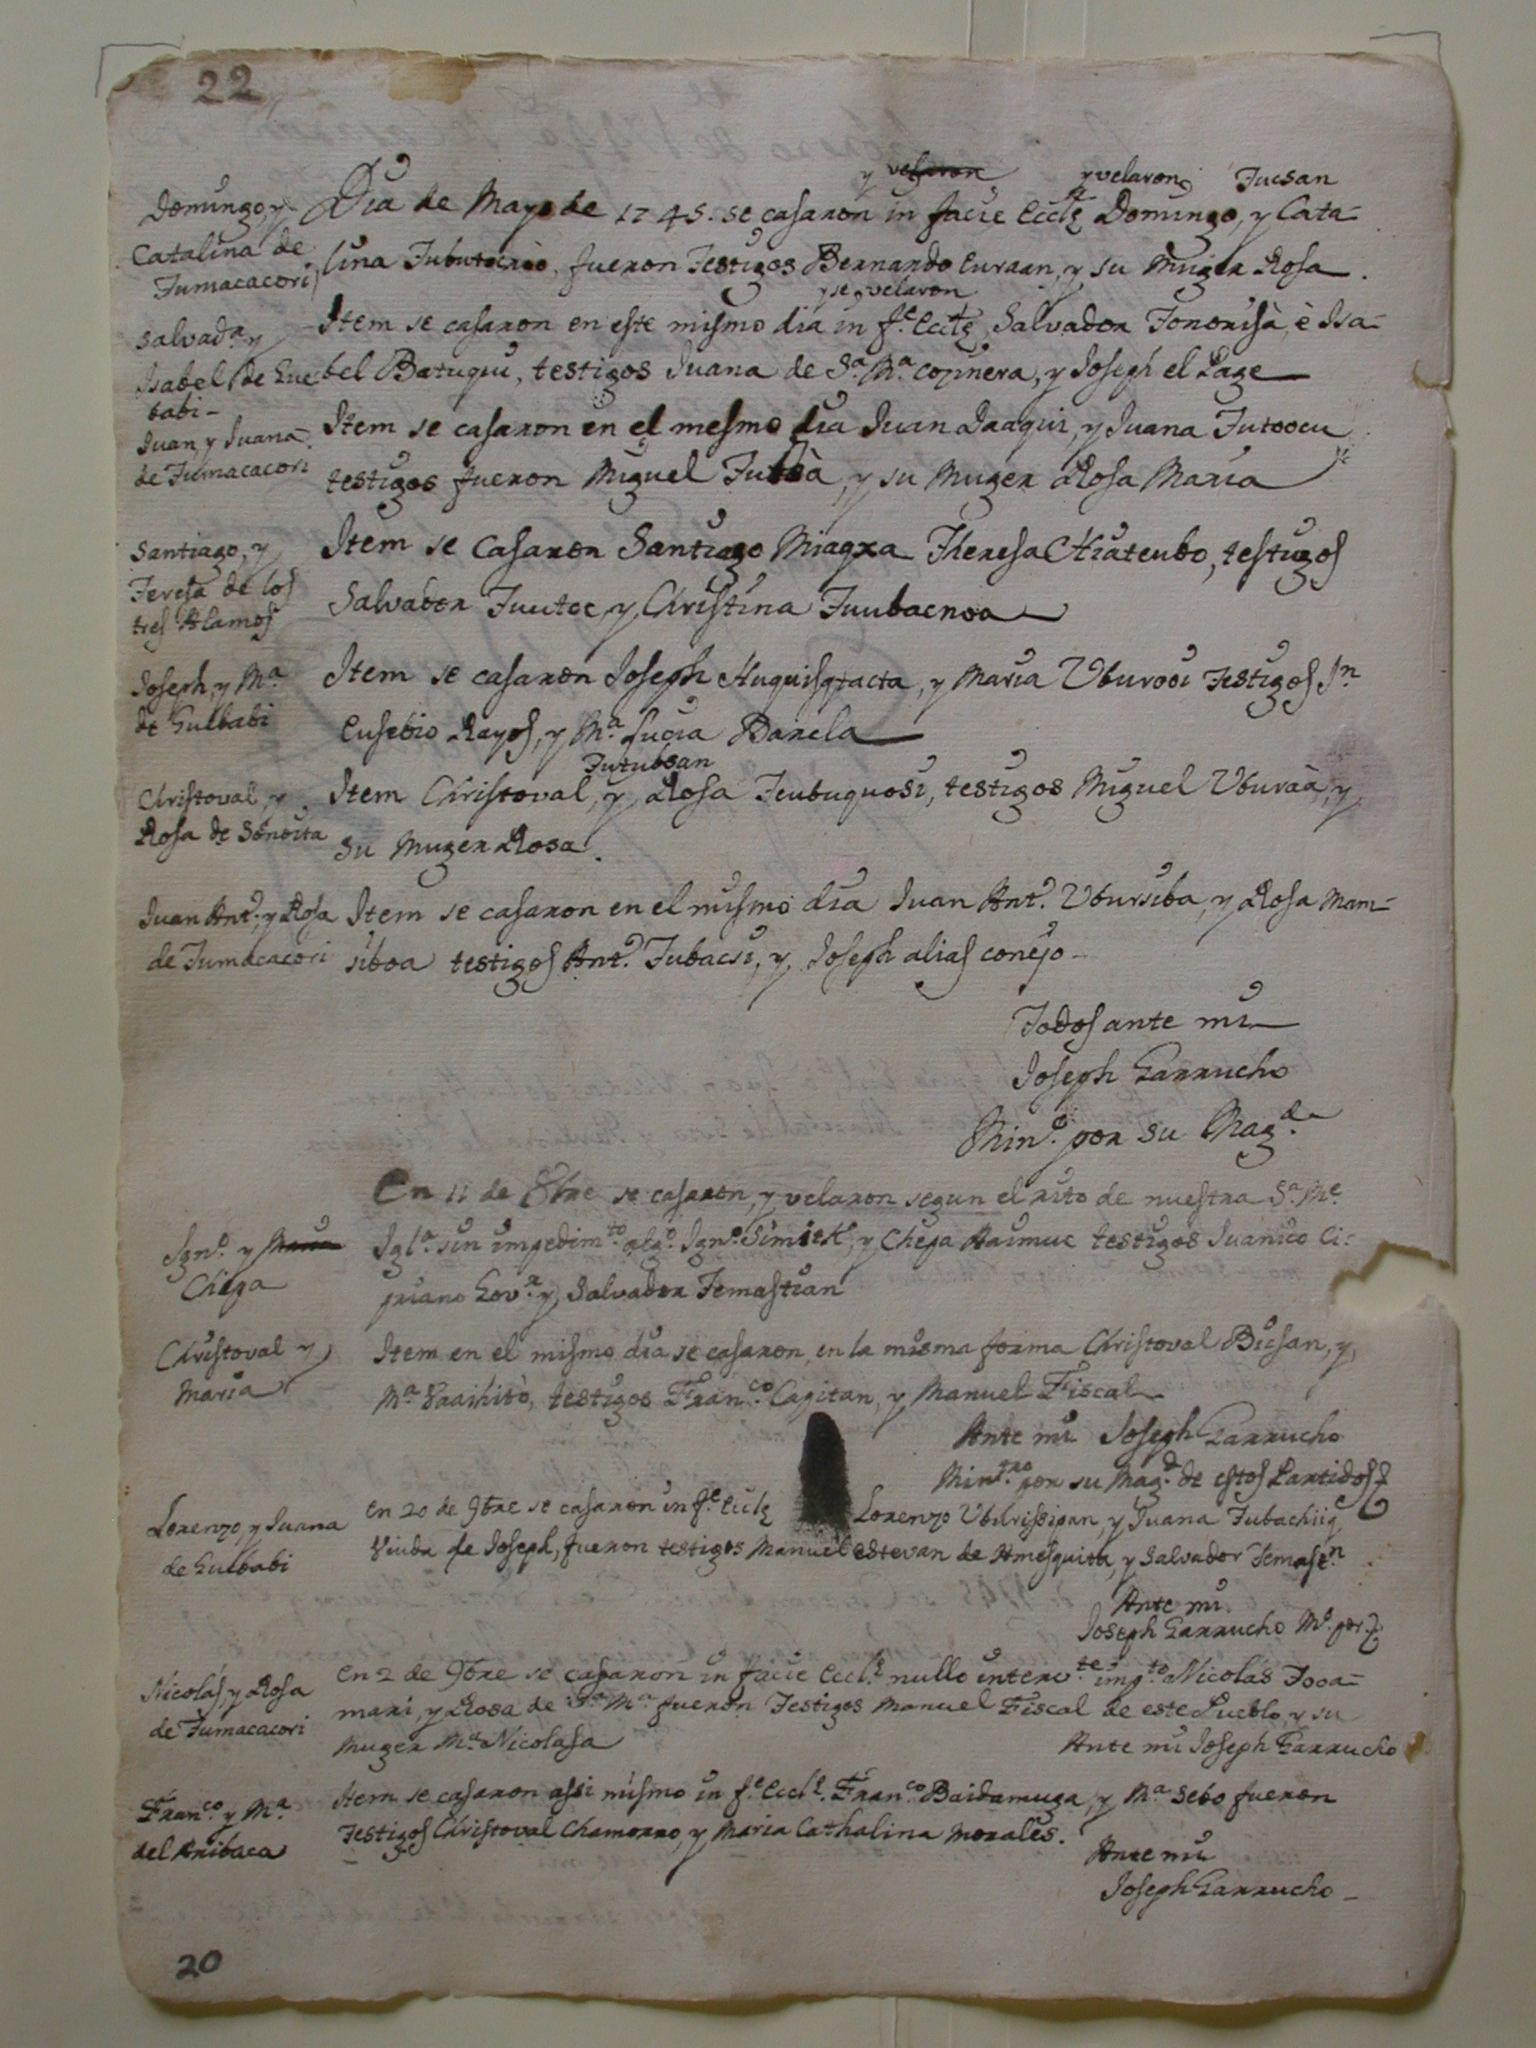 22
y velaron y velaron Tucsan
Domingo, y Dia de Mayo de 1745. se casaron in facie Eccle Domingo, y Cata-
Catalina de lina Tubutocroo, fueron Testigos Bernardo Curaan, y su Muger Rosa.
Tumacacori
y se velaron
Salvad.r y Item se casaron en este mismo dia in f.e Eccle Salvador Tonorisà, è Isa-
Isabel de Gue bel Batuqui, testigos Juana de S.a M.a cozinera, y Joseph el Page
babi-
Juan y Juana Item se casaron en el mesmo dia Juan Daaqui, y Juana Tutoocu
de Tumacacori testigos fueron Miguel Tubsà, y su Muger Rosa Maria
Santiago, y Item se Casaron Santiago Miagxa Theresa Hiatenbo, testigos
Teresa de los
tres Alamos Salvador Tuutoc y Christina Tuubacnoa
Joseph, y M.a Item se casaron Joseph Huquisgtacta, y Maria Uburooi Testigos J.n
de Guebabi Eusebio Rayos, y M.a Lucia Barela
Tutubsan
Christoval y Item Christoval, y Rosa Teubuquosi, testigos Miguel Uburaà, y
Rosa de Sonoita su Muger Rosa.
Juan Ant.o y Rosa Item se casaron en el mismo dia Juan Ant.o Ubursiba, y Rosa Mam-
de Tumacacori siboa testigos Ant.o Tubacsi, y Joseph alias conejo-
Todos ante mi
Joseph Garrucho
Min.o por su Mag.d
En 11 de 8bre se casaron, y velaron segun el rito de nuestra S.a M.e
Ign.o y Maria Igl.a sin impedim.to alg.o Ign.o Simiek, y Chepa Haimuc testigos Juanico Ci-
Chepa priano Gov.r y Salvador Temastian
Christoval y Item en el mismo dia se casaron en la misma forma Christoval Bicsan, y
Maria M.a testigos Fran.co Capitan, y Manuel Fiscal
Ante mi Joseph Garrucho
Min.tro por su Mag.d de estos Partidos
Lorenzo, y Juana En 20 de 9bre se casaron in f.e Eccle Lorenzo Uburissipan, y Juana Tubachiig
de Guebabi Viuda de Joseph, fueron testigos Manuel estevan de Amesquita, y Salvador Temast.n
Ante mi
Joseph Garrucho M.o por
Nicolás y Rosa En 2 de 9bre se casaron in facie Eccl.e nullo interv.te imp.to Nicolás Tooa-
de Tumacacori mari, y Rosa de S.ta M.a fueron Testigos Manuel Fiscal de este Pueblo, y su
Muger M.a Nicolasa Ante mi Joseph Garrucho
Fran.co y M.a Item se casaron assi mismo in f.e Eccl.e Fran.co Baidamuga, y M.a Sebo fueron
del Aribaca Testigos Christoval Chamorro, y Maria Cathalina Morales.
Ante mi
Joseph Garrucho-
20